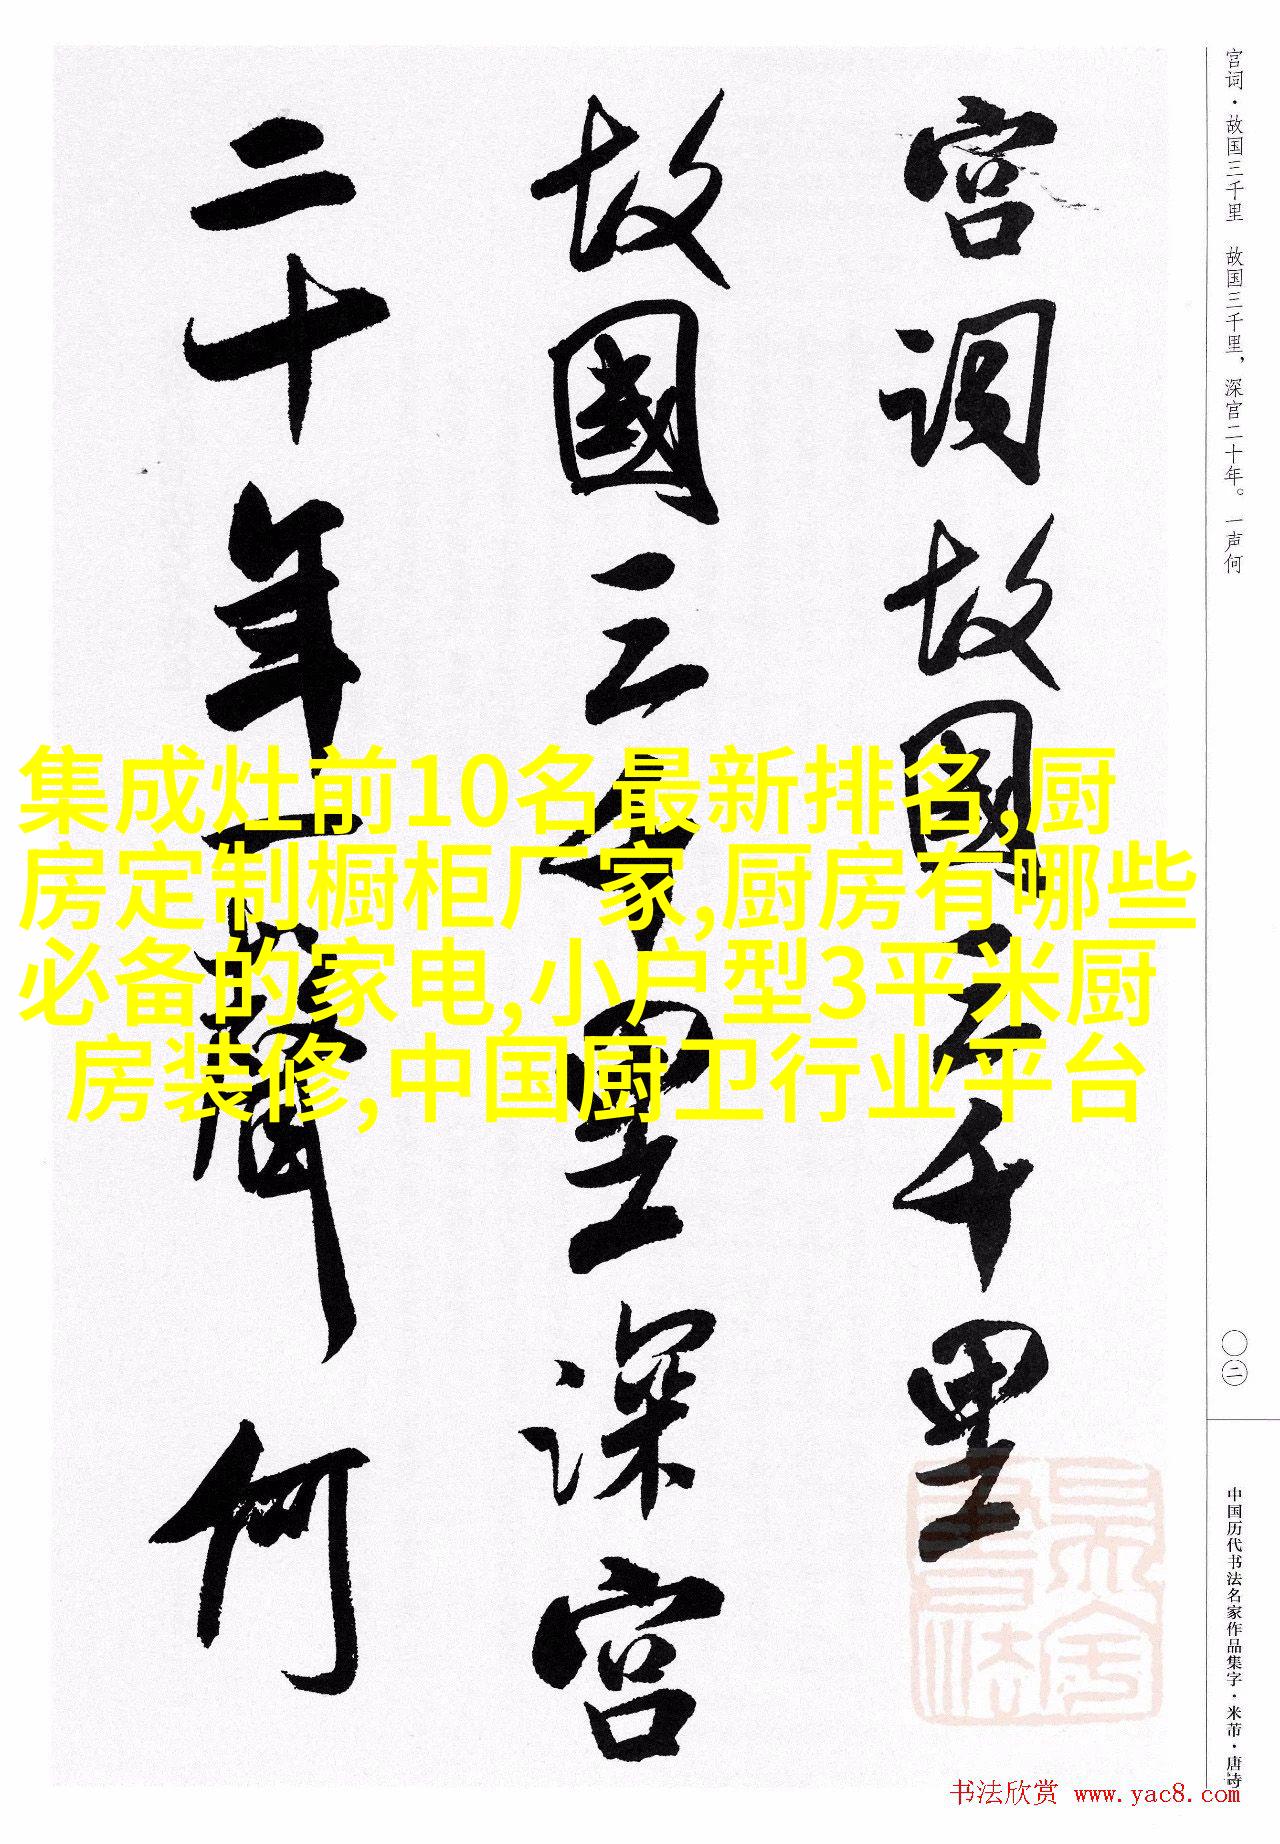 宫词故國三千里
故國三千里深宫
二十年一聲何
宫词·故国三千里 故国三千里，深宫二十年。一声何
〇二
中国历代书法名家作品集字·米芾·唐诗
集成灶前10名最新排名,厨
房定制橱柜厂家,厨房有哪些
必备的家电,小户型3平米厨
房装修,中国厨卫行业平台
书法欣赏 www.yac8.com